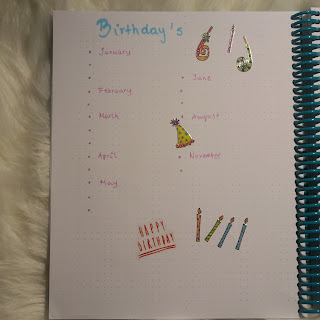 Birthday's
January
February
March
April
May
June
August
November
HAPPY
BIRTHDAY